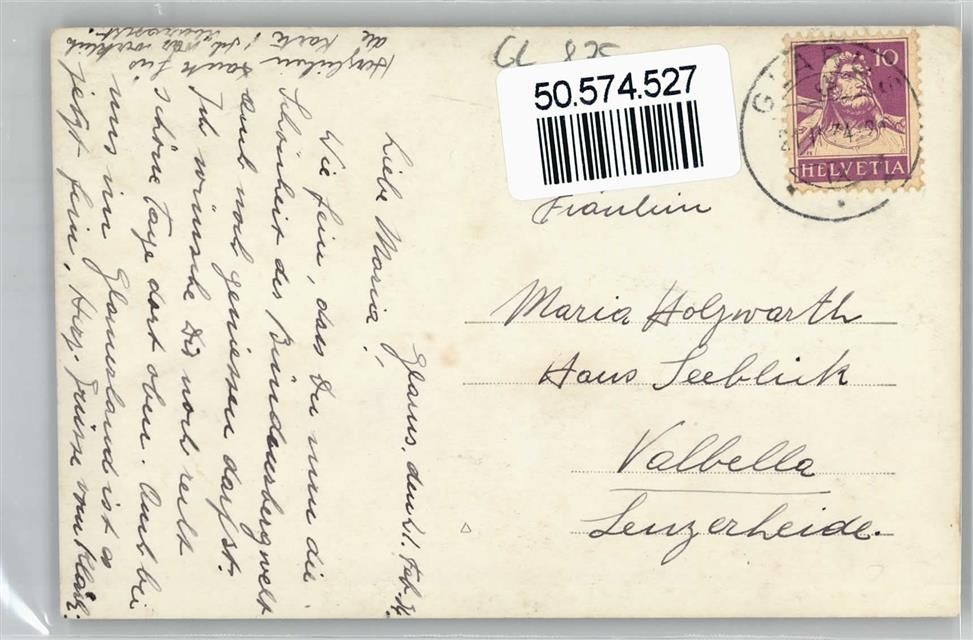 GL 825
50.574.527
GLARUS
10
HELVETIA
Fräulein
Maria Holzwarth
Haus Seeblick
Valbella
Lenzerheide.
Glarus, den 21. Feb. 34.
Liebe Maria!
Wie fein, dass Du nun die
Schönheit des Bündnerbergwelt
auch noch geniessen darfst.
Ich wünsche Dir noch recht
schöne Tage dort oben. Auch bei
uns im Glarnerland ist es
jetzt fein. Herzl. Grüsse von Klärli.
Herzlichen Dank für
die Karte!